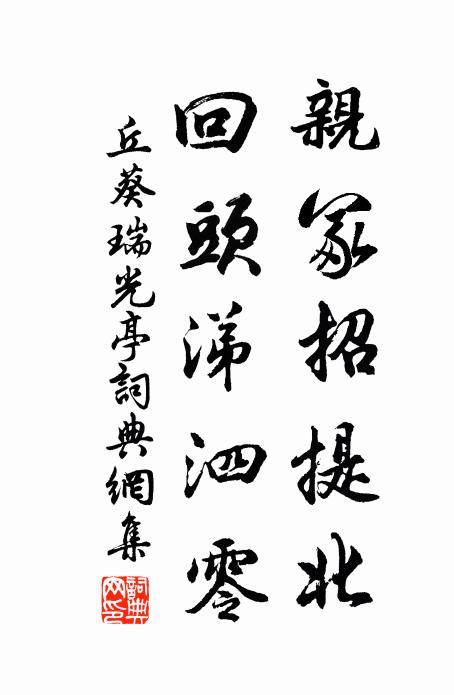 親冢招提北
回頭涕泗零
丘葵瑞光亭詞典網集
詞典网印